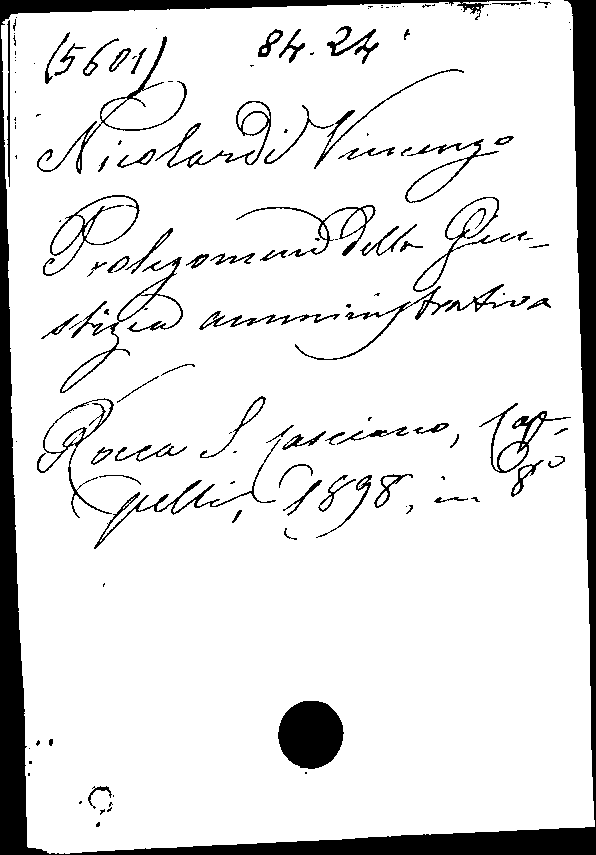 (5601) 84.24
Nicolardi Vincenzo
Prolegomeni della Giu-
stizia amministrativa
Rocca S. Casciano, Cap-
pelli, 1898, in 8º